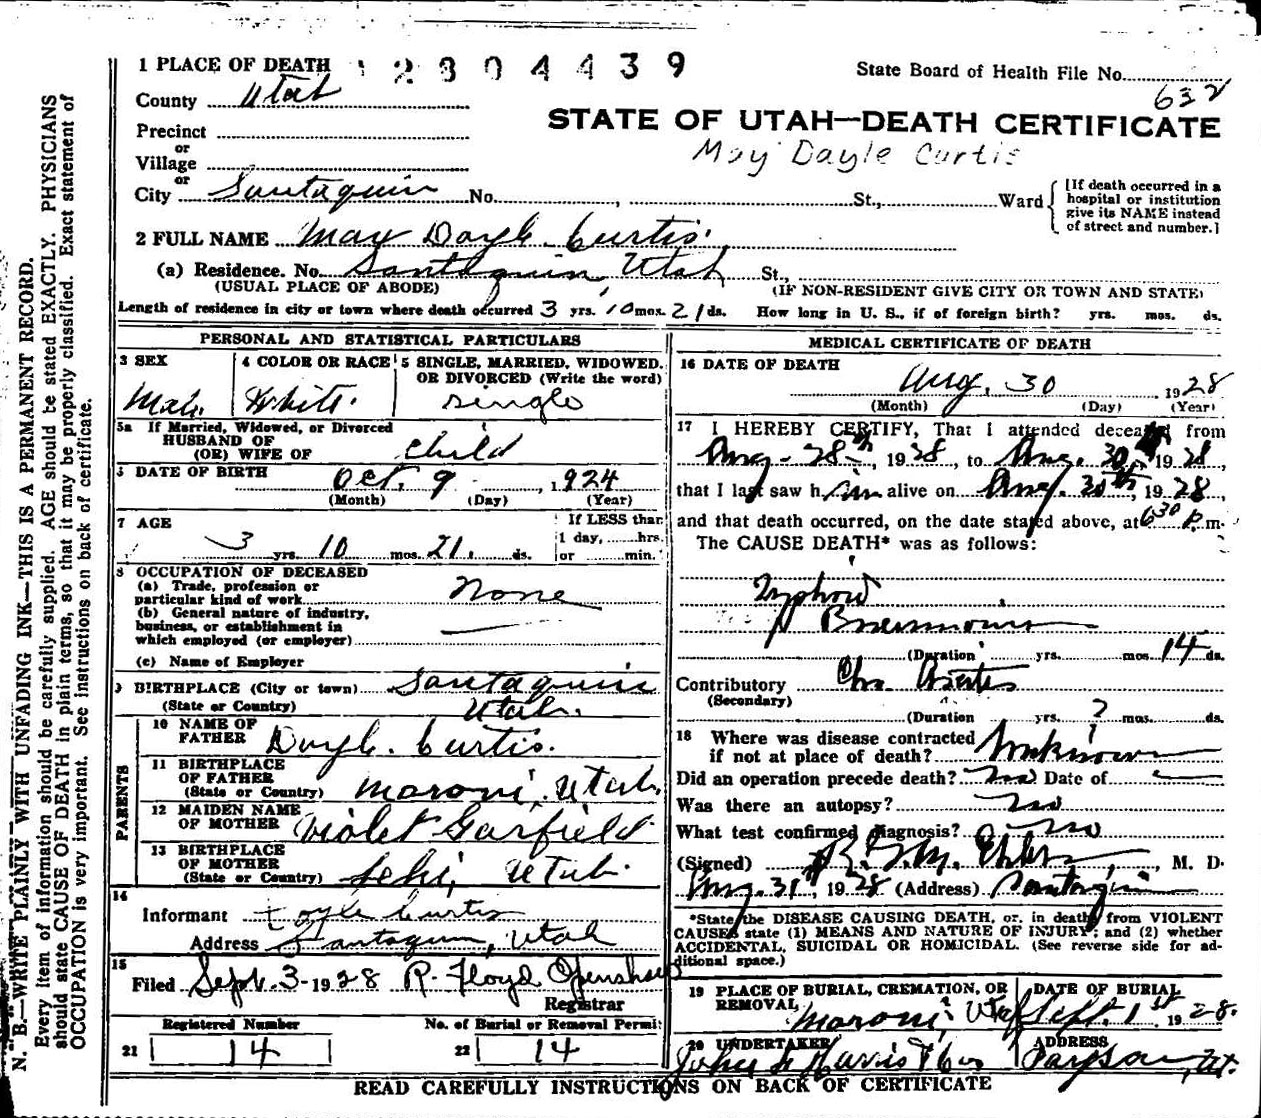 1 PLACE OF DEATH 2804439
State Board of Health File No.
County Utah
632
STATE OF UTAH—DEATH CERTIFICATE
Precinct
or
May Dayle Curtis
Village
or
City Santaquin No. , St., Ward
[If death occurred in a
hospital or institution
give its NAME instead
of street and number.]
2 FULL NAME Max Doyle Curtis.
(a) Residence. No. Santaquin, Utah St.,
(USUAL PLACE OF ABODE) (IF NON-RESIDENT GIVE CITY OR TOWN AND STATE)
Length of residence in city or town where death occurred 3 yrs. 10 mos. 21 ds. How long in U. S., if of foreign birth? yrs. mos. ds.
PERSONAL AND STATISTICAL PARTICULARS
3 SEX 4 COLOR OR RACE 5 SINGLE, MARRIED, WIDOWED.
OR DIVORCED (Write the word)
Male. White. single
5a If Married, Widowed, or Divorced
HUSBAND OF
(OR) WIFE OF Child
DATE OF BIRTH Oct. 9 , 1924
(Month) (Day) (Year)
7 AGE If LESS than
1 day, hrs.
3 yrs. 10 mos. 21. ds. or min.
8 OCCUPATION OF DECEASED
(a) Trade, profession or
particular kind of work None
(b) General nature of industry,
business, or establishment in
which employed (or employer)
(c) Name of Employer
9 BIRTHPLACE (City or town) Santaquin
(State or Country) Utah.
PARENTS
10 NAME OF
FATHER Doyle Curtis.
11 BIRTHPLACE
OF FATHER
(State or Country) Moroni, Utah.
12 MAIDEN NAME
OF MOTHER Violet Garfield
13 BIRTHPLACE
OF MOTHER
(State or Country) Lehi, Utah.
14
Informant Doyle Curtis
Address Santaquin, Utah
15
Filed Sept. 3- 1928 R. Floyd Openshaw
Registrar
Registered Number No. of Burial or Removal Permit
21 14 22 14
MEDICAL CERTIFICATE OF DEATH
16 DATE OF DEATH
Aug. 30 1928
(Month) (Day) (Year)
17 I HEREBY CERTIFY, That I attended deceased from
Aug. 28th, 1928, to Aug. 30th 1928,
that I last saw him alive on Aug. 30th, 1928,
and that death occurred, on the date stated above, at 6 30 P.m.
The CAUSE DEATH* was as follows:
Typhoid
Pneumonia
(Duration yrs. mos. 14 ds.
Contributory
(Secondary)
(Duration yrs. ? mos. ds.
18 Where was disease contracted
if not at place of death? Unknown
Did an operation precede death? no Date of
Was there an autopsy? no
What test confirmed diagnosis? no
(Signed) , M. D.
Aug. 31st, 1928 (Address) Santaquin
*State the DISEASE CAUSING DEATH, or, in death from VIOLENT
CAUSES state (1) MEANS AND NATURE OF INJURY; and (2) whether
ACCIDENTAL, SUICIDAL OR HOMICIDAL. (See reverse side for ad-
ditional space.)
19 PLACE OF BURIAL, CREMATION, OR
REMOVAL Moroni, Utah
DATE OF BURIAL
Sept. 1st 1928.
20 UNDERTAKER
ADDRESS
Payson, Ut.
READ CAREFULLY INSTRUCTIONS ON BACK OF CERTIFICATE
N. B.—WRITE PLAINLY WITH UNFADING INK—THIS IS A PERMANENT RECORD.
Every item of information should be carefully supplied. AGE should be stated EXACTLY. PHYSICIANS
should state CAUSE OF DEATH in plain terms, so that it may be properly classified. Exact statement of
OCCUPATION is very important. See instructions on back of certificate.